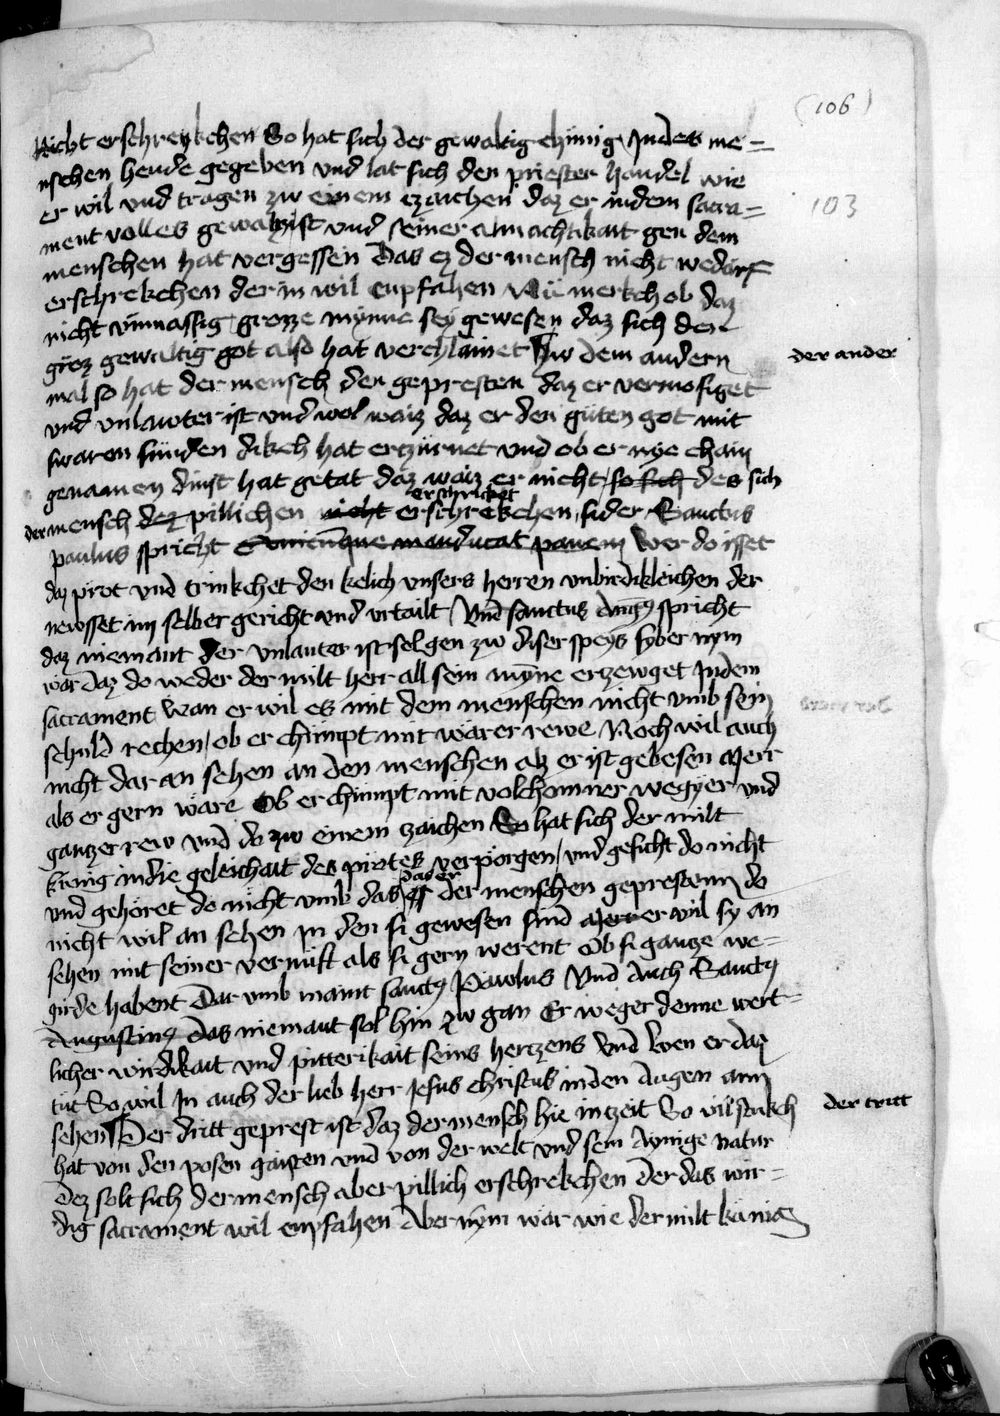 (106)
Nicht erschrekchen So hat sich der gewaltig chünig Jn des me=
nschen hende gegeben vnd lat sich den priester handel wie
er wil vnd tragen zw einem czaichen daz er in dem sacra=
103
ment volles gewaltz ist vnd seiner almachtikait gen dem
menschen hat vergessen Das ez der mensch nicht wedarf
erschrekchen der in wil enpfahen Nu merkch ob daz
nicht vnmassig grozze mynne sey gewesen daz sich der
groz gewaltig got also hat verchlainet Zw dem andern
der ander
mal so hat der mensch den gepresten daz er vermosiget
vnd vnlawter ist vnd wol waiz daz er den güten got mit
swaren sünden dikch hat erczürnet vnd ob er nye chain
genamen dinst hat getat daz waiz er nicht so sich des sich
der mensch dez pillichen nicht erschricket erschrekchen sider Sanctus
paulus spricht Quicumque manducat panem Wer do isset
daz prot vnd trinkchet den kelich vnsers herren vnbirdikleichen der
newsset im selber gericht vnd vrtailt Vnd sanctus Aug9 spricht
daz niemant der vnlauter ist sol gen zw diser speys syber nym
war daz do weder der milt herr all sein mỹne erczewget Jn dem
sacrament Wan er wil es mit dem menschen nicht vmb sein
schuld rechen / ob er chümpt mit warer rewe Noch wil auch
nicht dar an sehen an den menschen alz er ist gebesen Merr
als er gern wäre Ob er chümpt mit volchomner wegyer vnd
ganczer rew vnd do zw einem czaichen So hat sich der milt
künig in die geleichait des protes verporgen / vnd gesicht do nicht
vnd gehöret do nicht vmb das daz er der menschen gepresten do
nicht wil an sehen Jn den si gewesen sind Merr er wil sy an
sehen mit seiner vernüft als si gern werent Ob si gancze we=
girde habent Dar vmb maint sanct9 Pawlus Vnd Auch Sanct9
Augustin9 Das niemant sol hin zw gan Er weger denne wert=
licher wirdikait vnd pitterikait seins herczens Vnd wen er daz
tüt So wil Jn auch der lieb herr Jesus christus in den Augen ann
sehen Der dritt geprest ist daz der mensch hie in zeit So vil strikch
der tritt
hat von den posen gaisten vnd von der welt vnd sein Aynige natur
Dez solt sich der mensch aber pillich erschrekchen der das wir=
dig sacrament wil enpfahen Aber nym war wie der milt künig